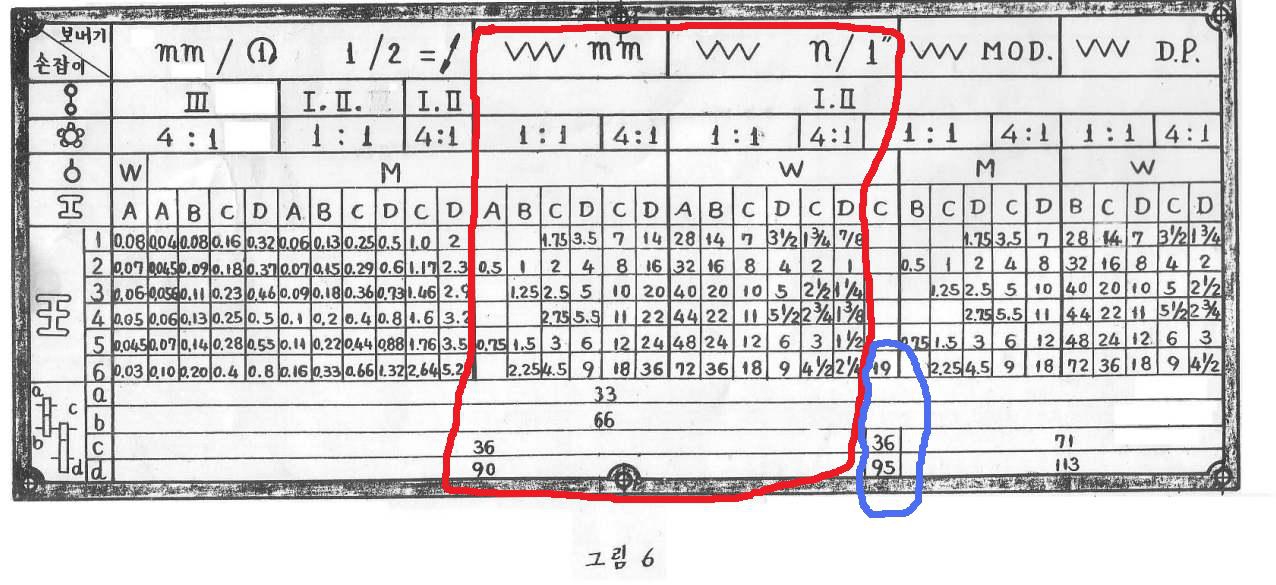 보내기
손잡이
mm / 1/2 = mm n/1" MOD. D.P.
III I. II. I. II I. II
4:1 1:1 4:1 1:1 4:1 1:1 4:1 1:1 4:1 1:1 4:1
W M W M W
A A B C D A B C D C D A B C D C D A B C D C D C B C D C D B C D C D
1 0.08 0.04 0.08 0.16 0.32 0.06 0.13 0.25 0.5 1.0 2 1.75 3.5 7 14 28 14 7 3½ 1¾ ⅞ 1.75 3.5 7 28 14 7 3½ 1¾
2 0.07 0.045 0.09 0.18 0.37 0.07 0.15 0.29 0.6 1.17 2.3 0.5 1 2 4 8 16 32 16 8 4 2 1 0.5 1 2 4 8 32 16 8 4 2
3 0.06 0.056 0.11 0.23 0.46 0.09 0.18 0.36 0.73 1.46 2.9 1.25 2.5 5 10 20 40 20 10 5 2½ 1¼ 1.25 2.5 5 10 40 20 10 5 2½
4 0.05 0.06 0.13 0.25 0.5 0.1 0.2 0.4 0.8 1.6 3.2 2.75 5.5 11 22 44 22 11 5½ 2¾ 1⅜ 2.75 5.5 11 44 22 11 5½ 2¾
5 0.045 0.07 0.14 0.28 0.55 0.11 0.22 0.44 0.88 1.76 3.5 0.75 1.5 3 6 12 24 48 24 12 6 3 1½ 0.75 1.5 3 6 12 48 24 12 6 3
6 0.03 0.10 0.20 0.4 0.8 0.16 0.33 0.66 1.32 2.64 5.2 2.25 4.5 9 18 36 72 36 18 9 4½ 2¼ 19 2.25 4.5 9 18 72 36 18 9 4½
a a 33
c b 66
b c 36 36 71
d d 90 95 113
그림 6